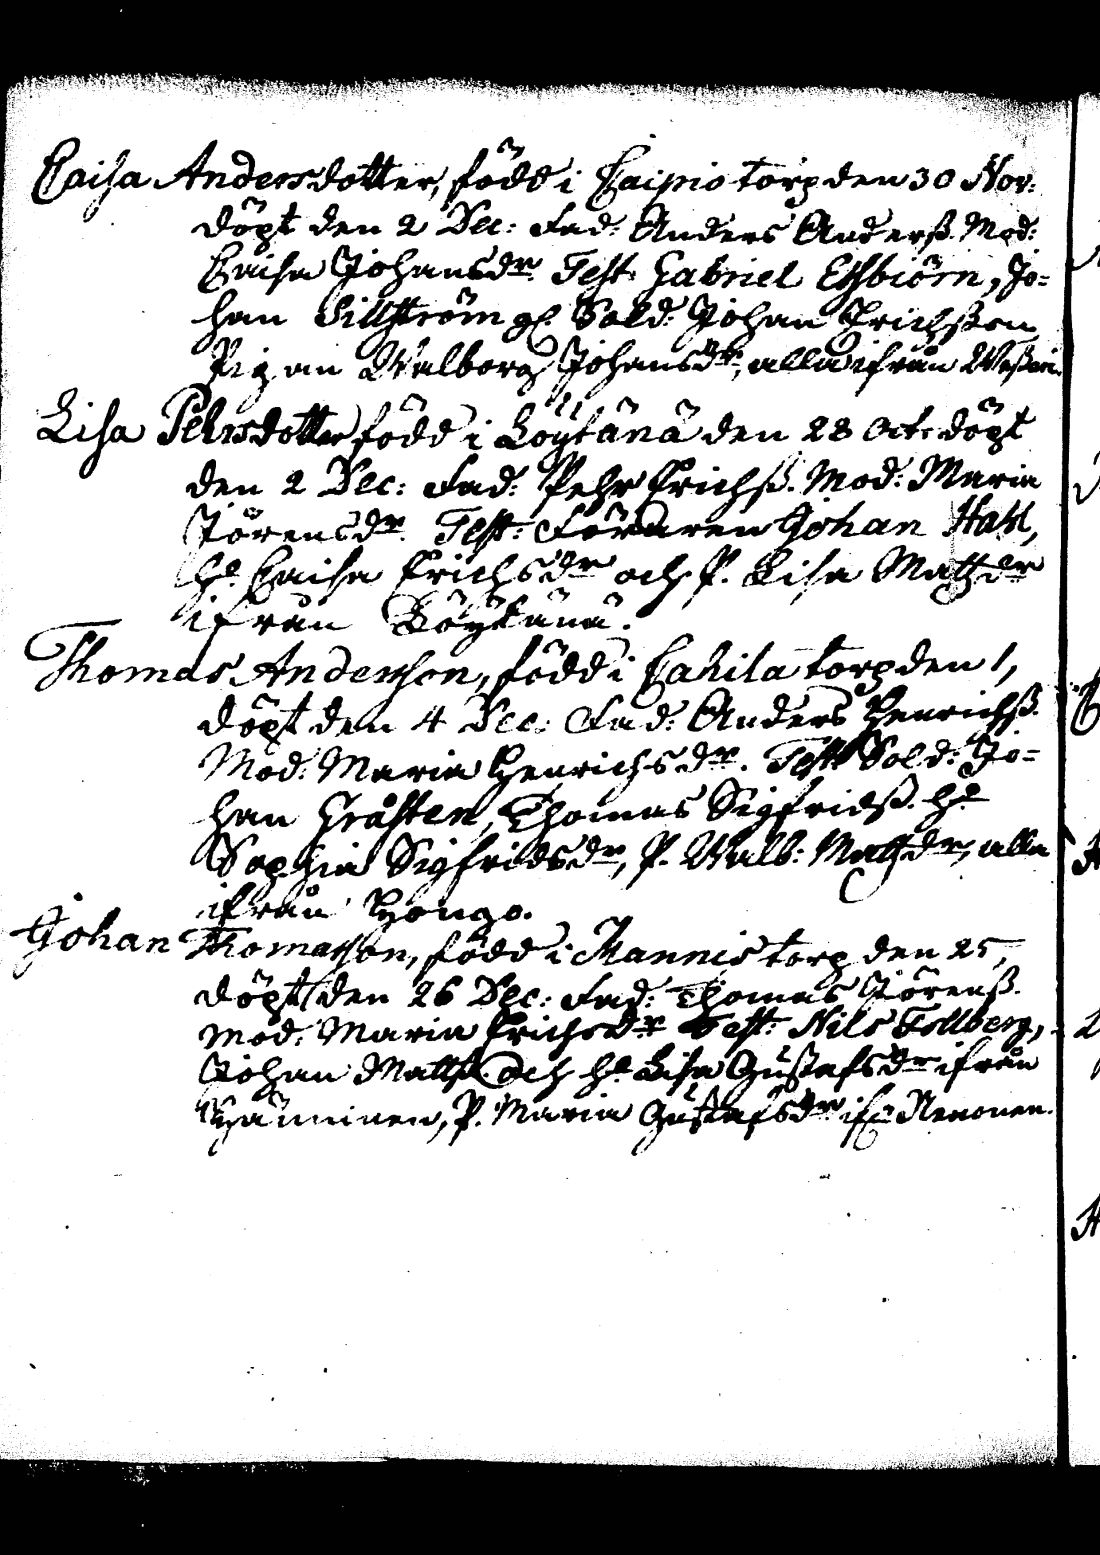 Caisa Andersdotter, född i Caipio torp den 30 Nov:
döpt den 2 Dec: Fad: Anders Anderß. Mod:
Caisa Johansdr Test: Gabriel Essbiörn, Jo=
han Sillström gl. Sold: Johan Erichsson
Pigan Walborg Johansdr, alla ifrån
Lisa Pehrsdotter född i Löytänä den 28 Oct: döpt
den 2 Dec: Fad: Pehr Erichß. Mod: Maria
Jörensdr. Test: Föraren Johan Hall,
h. Caisa Erichsdr och P. Lisa Mattsdr
ifrån Löytänä.
Thomas Andersson, född i Cahila torp den 1,
döpt den 4 Dec: Fad: Anders Henrichß.
Mod: Maria Henrichsdr. Test Sold: Jo=
han Gråsten, Thomas Sigfridß. h.
Sophia Sigfridsdr, P. Walb: Mattsdr, alla
ifrån Hongo.
Johan Thomasson, född i Mannis torp den 25,
döpt den 26 Dec: Fad: Thomas Jörenß.
Mod: Maria Erichsdr Test: Nils Follberg,
Johan Mattß. och h. Lisa Gustafsdr ifrån
Hänninen, P. Maria Gustafsdr ifr. Neuonen.